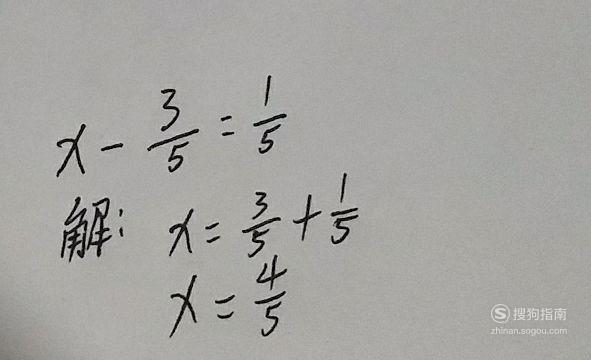 x - 3/5 = 1/5
解: x = 3/5 + 1/5
x = 4/5
搜狗指南
zhinan.sogou.com